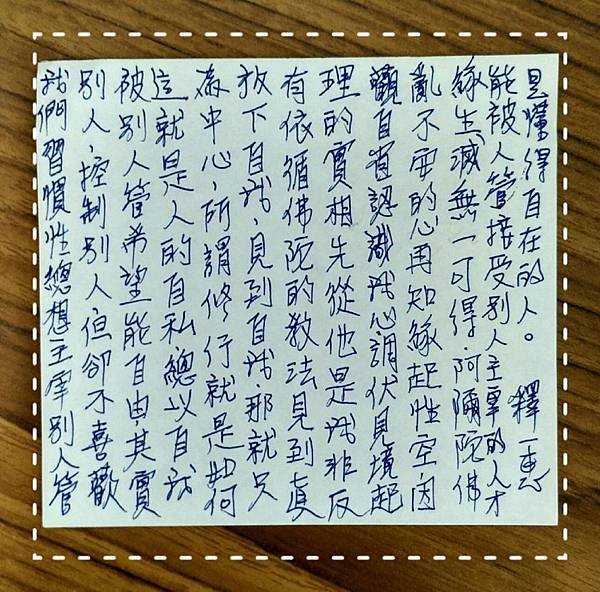 我們習慣性總想主宰別人管
別人,控制別人但卻不喜歡
被別人管希望能自由其實
這就是人的自私總以自我
為中心,所謂修行就是如何
放下自我,見到自我,那就只
有依循佛陀的教法見到真
理的實相先從他是我非反
觀自省認識我心調伏見境起
亂不安的心再知緣起性空因
緣生滅無一可得.阿彌陀佛
能被人管接受別人主宰的人才
是懂得自在的人。 釋一惠